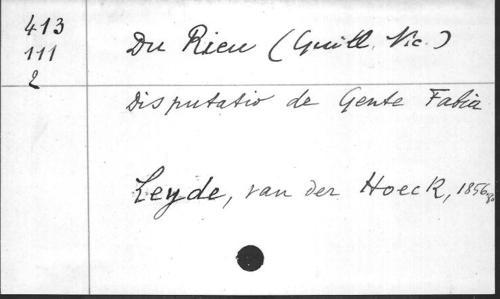 413
111
2
Du Rieu (Guill. Nic.)
Disputatio de Gente Fabia
Leyde, van der Hoeck, 1856